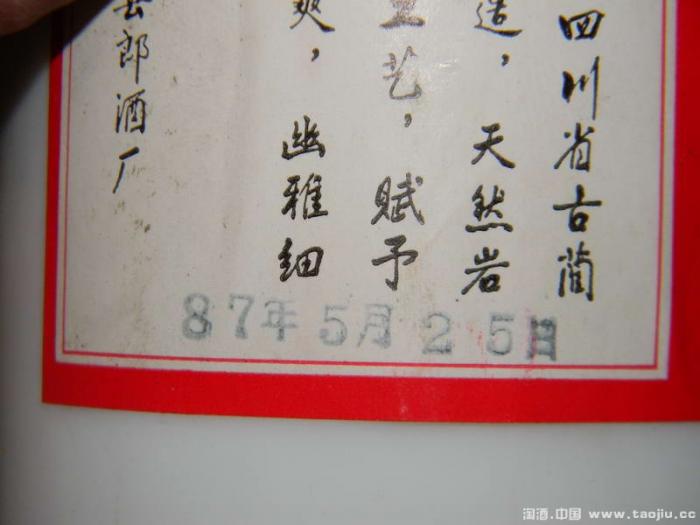 四川省古蔺
造，天然岩
工艺，赋予
爽，幽雅细
县郎酒厂
87年5月25日
淘酒.中国 www.taojiu.cc